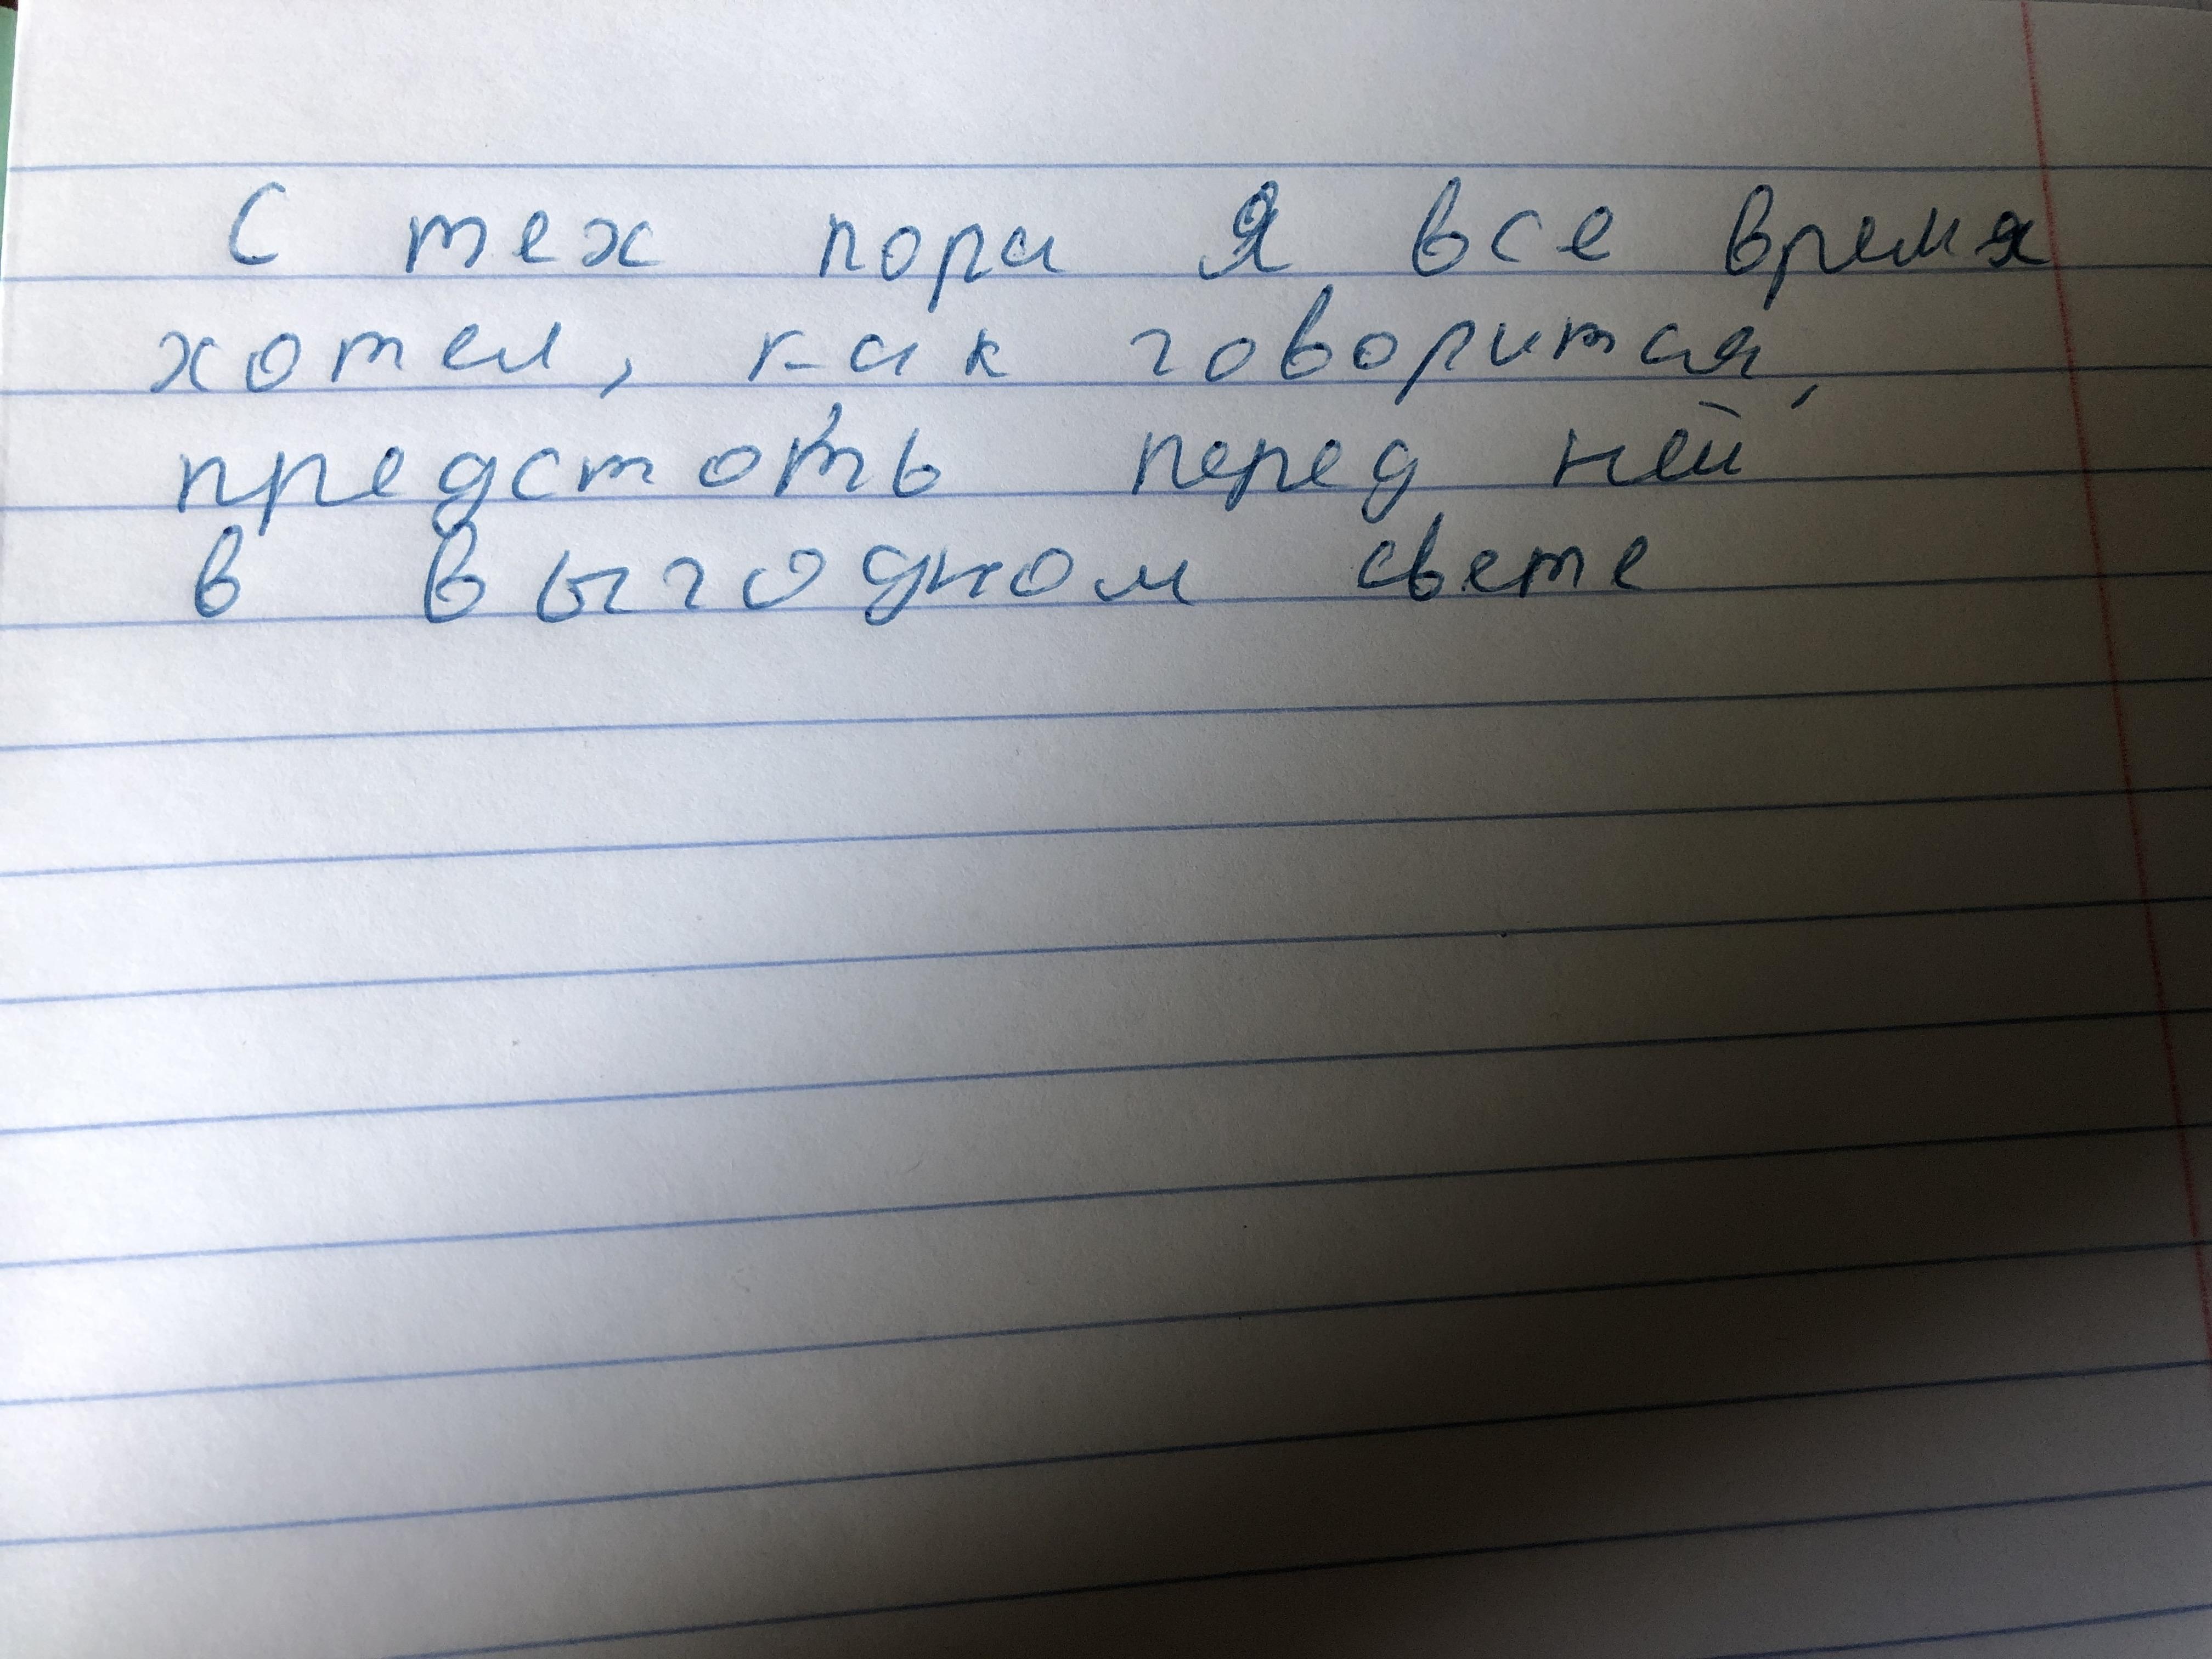 С тех пора я все время
хотел, как говоритая,
предстоть перед ней
в выгодном свете